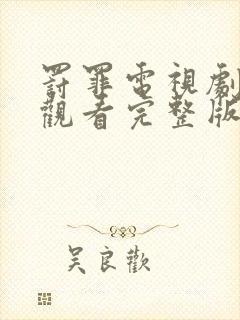 罰罪電視劇
觀看完整版
吳良歡